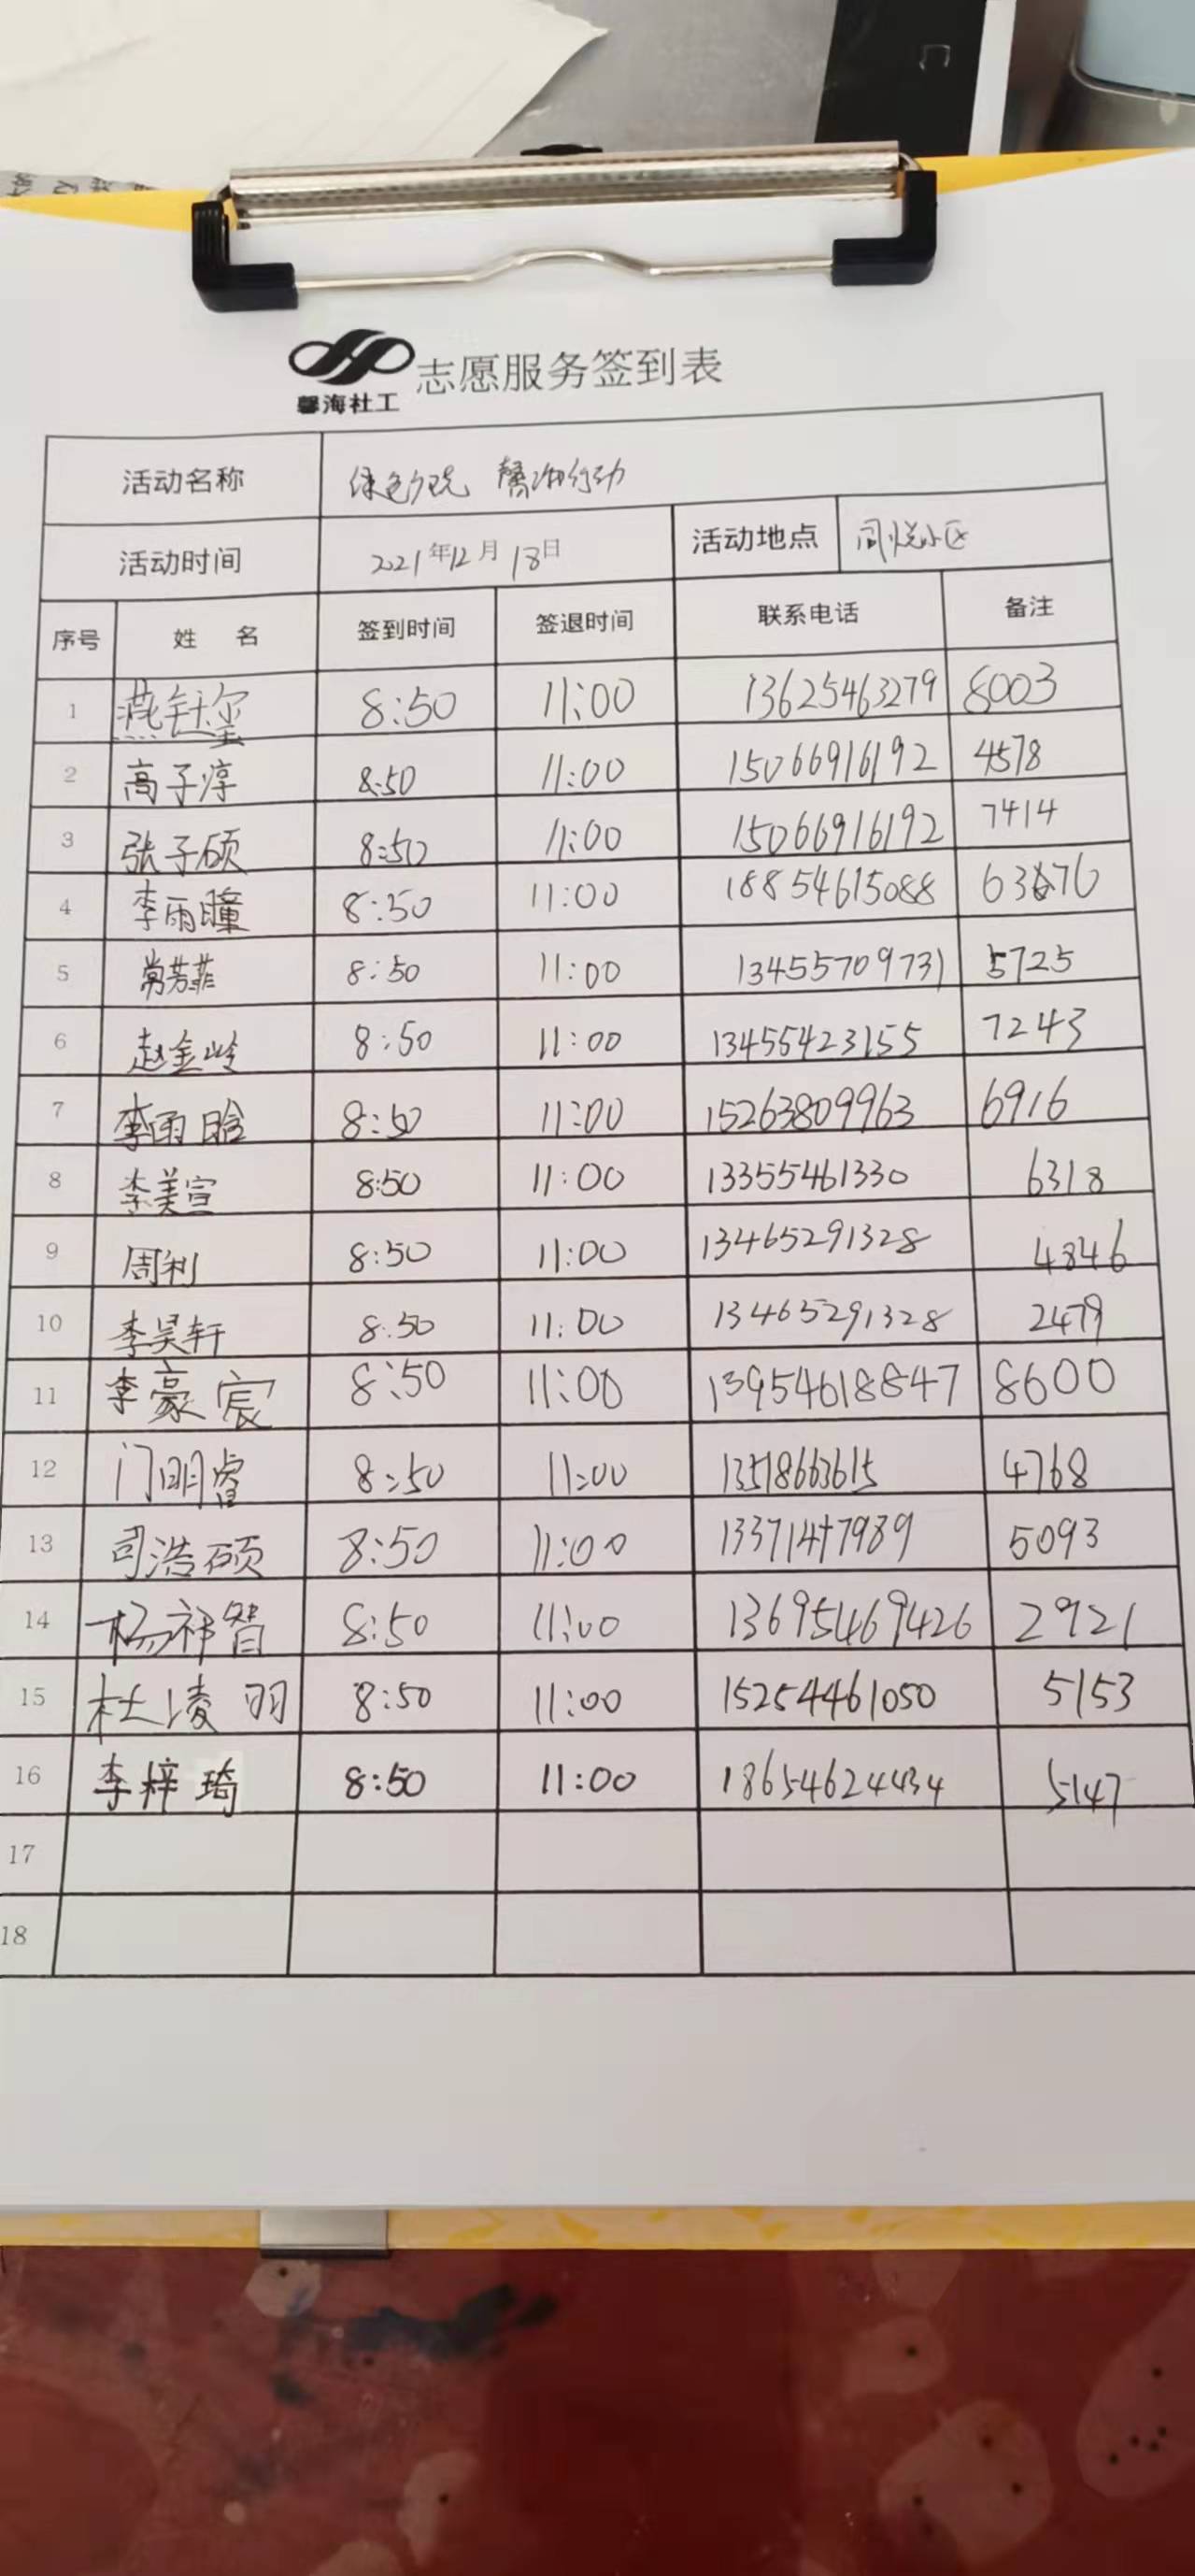 馨海社工
志愿服务签到表
活动名称 绿色 馨海行动
活动时间 2021年12月18日 活动地点 同悦小区
序号 姓 名 签到时间 签退时间 联系电话 备注
1 燕钰玺 8:50 11:00 13625463279 8003
2 高子淳 8:50 11:00 15066916192 4578
3 张子硕 8:50 11:00 15066916192 7414
4 李雨瞳 8:50 11:00 18854615088
5 常芳菲 8:50 11:00 13455709731 5725
6 赵金岭 8:50 11:00 13455423155 7243
7 李雨晗 8:50 11:00 15263809963 6916
8 李美宣 8:50 11:00 13355461330 6318
9 周利 8:50 11:00 13465291328 4846
10 李昊轩 8:50 11:00 13465291328 2479
11 李豪宸 8:50 11:00 13954618847 8600
12 门明睿 8:50 11:00 13518663615 4768
13 司浩硕 8:50 11:00 5093
14 杨祁智 8:50 11:00 13695469426 2921
15 杜凌羽 8:50 11:00 15254461050 5153
16 李梓琦 8:50 11:00 18654624434 5147
17
18